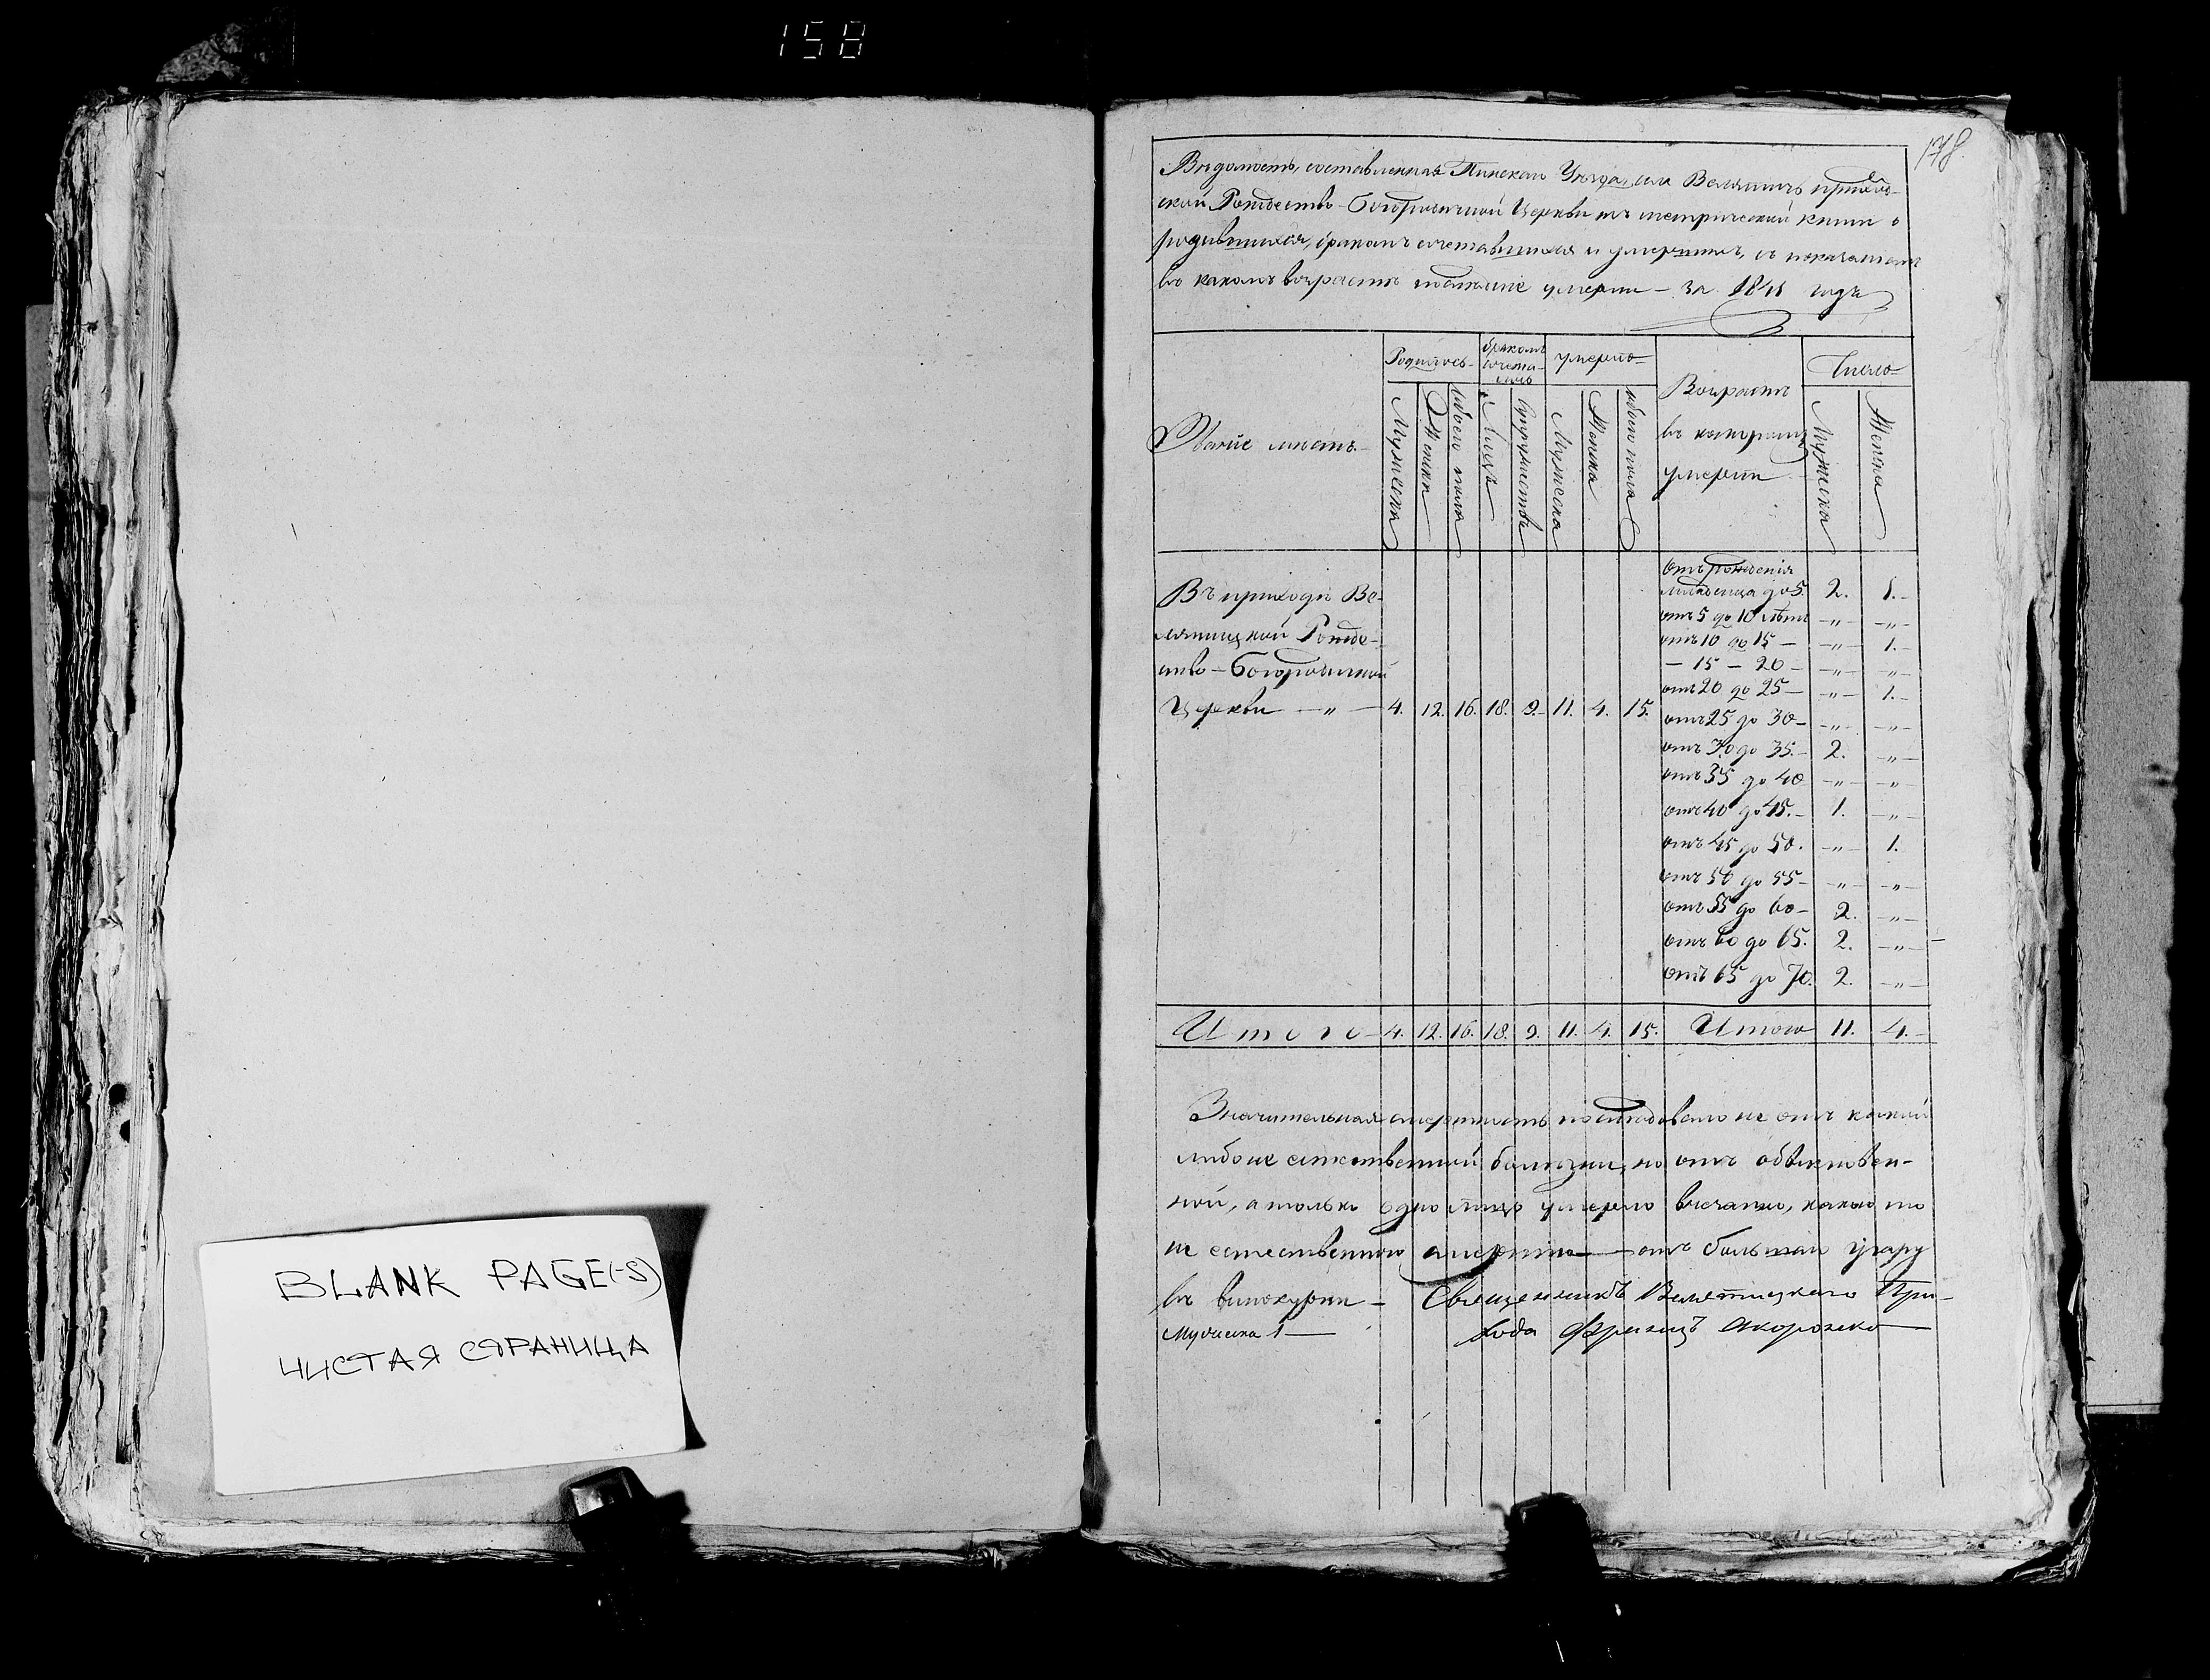 158
BLANK PAGE(-S)
ЧИСТАЯ СТРАНИЦА
178.
Вѣдомость, составленная Пинскаго Уѣзда, села Велятичъ приход-
ской Рождество-Богородичной Церкви изъ метрической книги о
родившихся, бракомъ сочетавшихся и умершихъ, съ показаніемъ
въ какомъ возрастѣ умерли – за годъ
Званіе мѣстъ
Родилось
Бракомъ сочета-лось
умерло
Возрастъ
въ которомъ
умерли
Число
Мужеска
Женска
Обоего пола
Лицъ
Супружествъ
Мужеска
Женска
обоего пола
Мужеска
Женска
Въ приходѣ Ве-
лятицкой Рожде-
ство-Богородичной
Церкви — „ — 4. 12. 16. 18. 9. 11. 4. 15.
Отъ рожденія
младенца до 5. 2. 1.
отъ 5 до 10 лѣтъ — „ — — „ —
отъ 10 до 15 — — „ — 1.
— 15 — 20 — — „ — — „ —
отъ 20 до 25 — — „ — 1.
отъ 25 до 30 — — „ — — „ —
отъ 30 до 35. — 2. — „ —
отъ 35 до 40 — „ — — „ —
отъ 40 до 45. — 1. — „ —
отъ 45 до 50. — „ — 1.
отъ 50 до 55 — — „ — — „ —
отъ 55 до 60 — 2. — „ —
отъ 60 до 65. 2. — „ —
отъ 65 до 70. 2. — „ —
Итого 4. 12. 16. 18. 9. 11. 4. 15. Итого 11. 4.
Значительная смертность послѣдовала не отъ какой
либо не естественной болѣзни, но отъ
ной, а только одно лице умерло
не естественною смертію — отъ угару
въ винокурни — Священникъ Велятицкаго При-
Мужеска 1 — хода